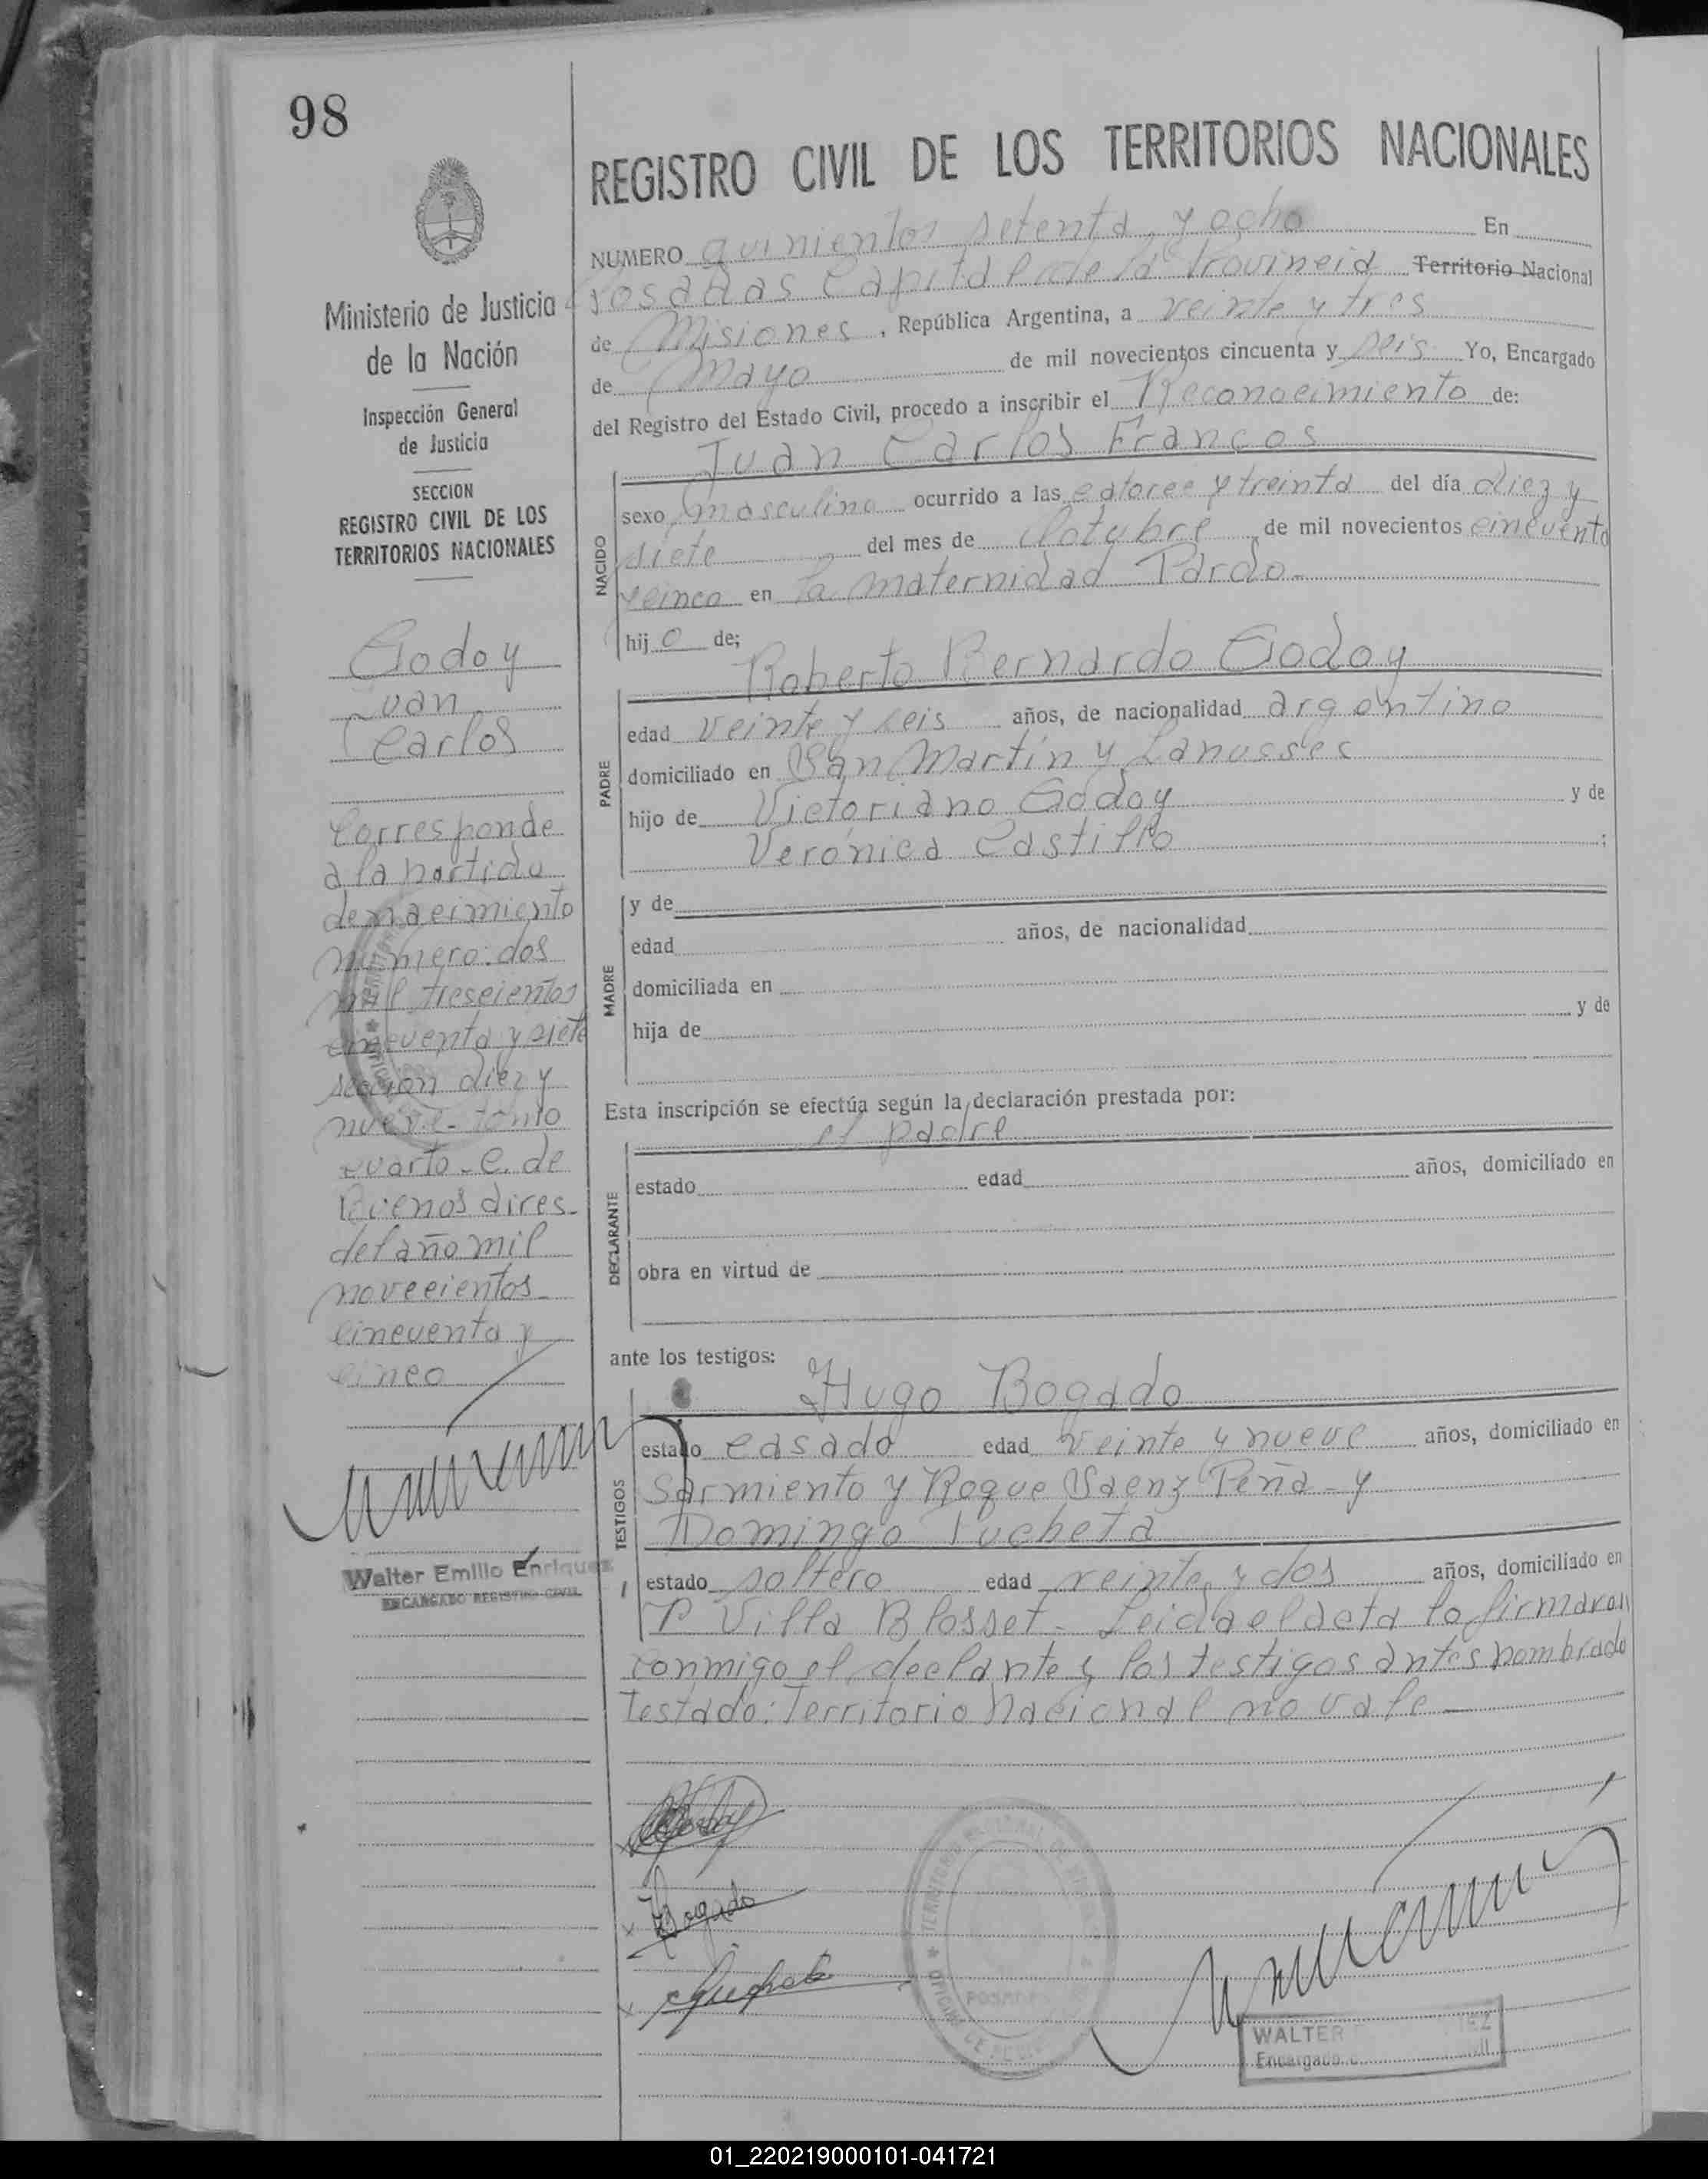 98
REGISTRO CIVIL DE LOS TERRITORIOS NACIONALES
NUMERO quinientos setenta y ocho En
Posadas Capital de la Provincia Territorio Nacional
de Misiones, República Argentina, a veinte y tres
de Mayo de mil novecientos cincuenta y seis Yo, Encargado
del Registro del Estado Civil, procedo a inscribir el Reconocimiento de:
Juan Carlos Francos
NACIDO
sexo masculino ocurrido a las catorce y treinta del día diez y
siete del mes de Octubre de mil novecientos cincuenta
y cinco en la maternidad Pardo-
hijo de;
Roberto Bernardo Godoy
PADRE
edad veinte y seis años, de nacionalidad argentino
domiciliado en San Martín y Lanusses
hijo de Victoriano Godoy y de
Verónica Castillo ;
MADRE
y de
edad años, de nacionalidad
domiciliada en
hija de y de
Esta inscripción se efectúa según la declaración prestada por:
el padre
DECLARANTE
estado edad años, domiciliado en
obra en virtud de
ante los testigos:
Hugo Bogado
TESTIGOS
estado casado edad veinte y nueve años, domiciliado en
Sarmiento y Roque Saenz Peña - y
Domingo Pucheta
estado soltero edad veinte y dos años, domiciliado en
Villa Blosset - Leida el acta la firmaron
conmigo el declante y los testigos antes nombrado
Testado: Territorio Nacional no vale
Bogado
WALTER
Encargado
Ministerio de Justicia
de la Nación
Inspección General
de Justicia
SECCION
REGISTRO CIVIL DE LOS
TERRITORIOS NACIONALES
Godoy
Juan
Carlos
Corresponde
a la partida
de nacimiento
número: dos
mil trescientos
cincuenta y siete
sección diez y
nueve - tomo
cuarto - C. de
Buenos Aires-
del año mil
novecientos
cincuenta y
cinco
Walter Emilio Enriquez
ENCARGADO REGISTRO CIVIL
01_220219000101-041721